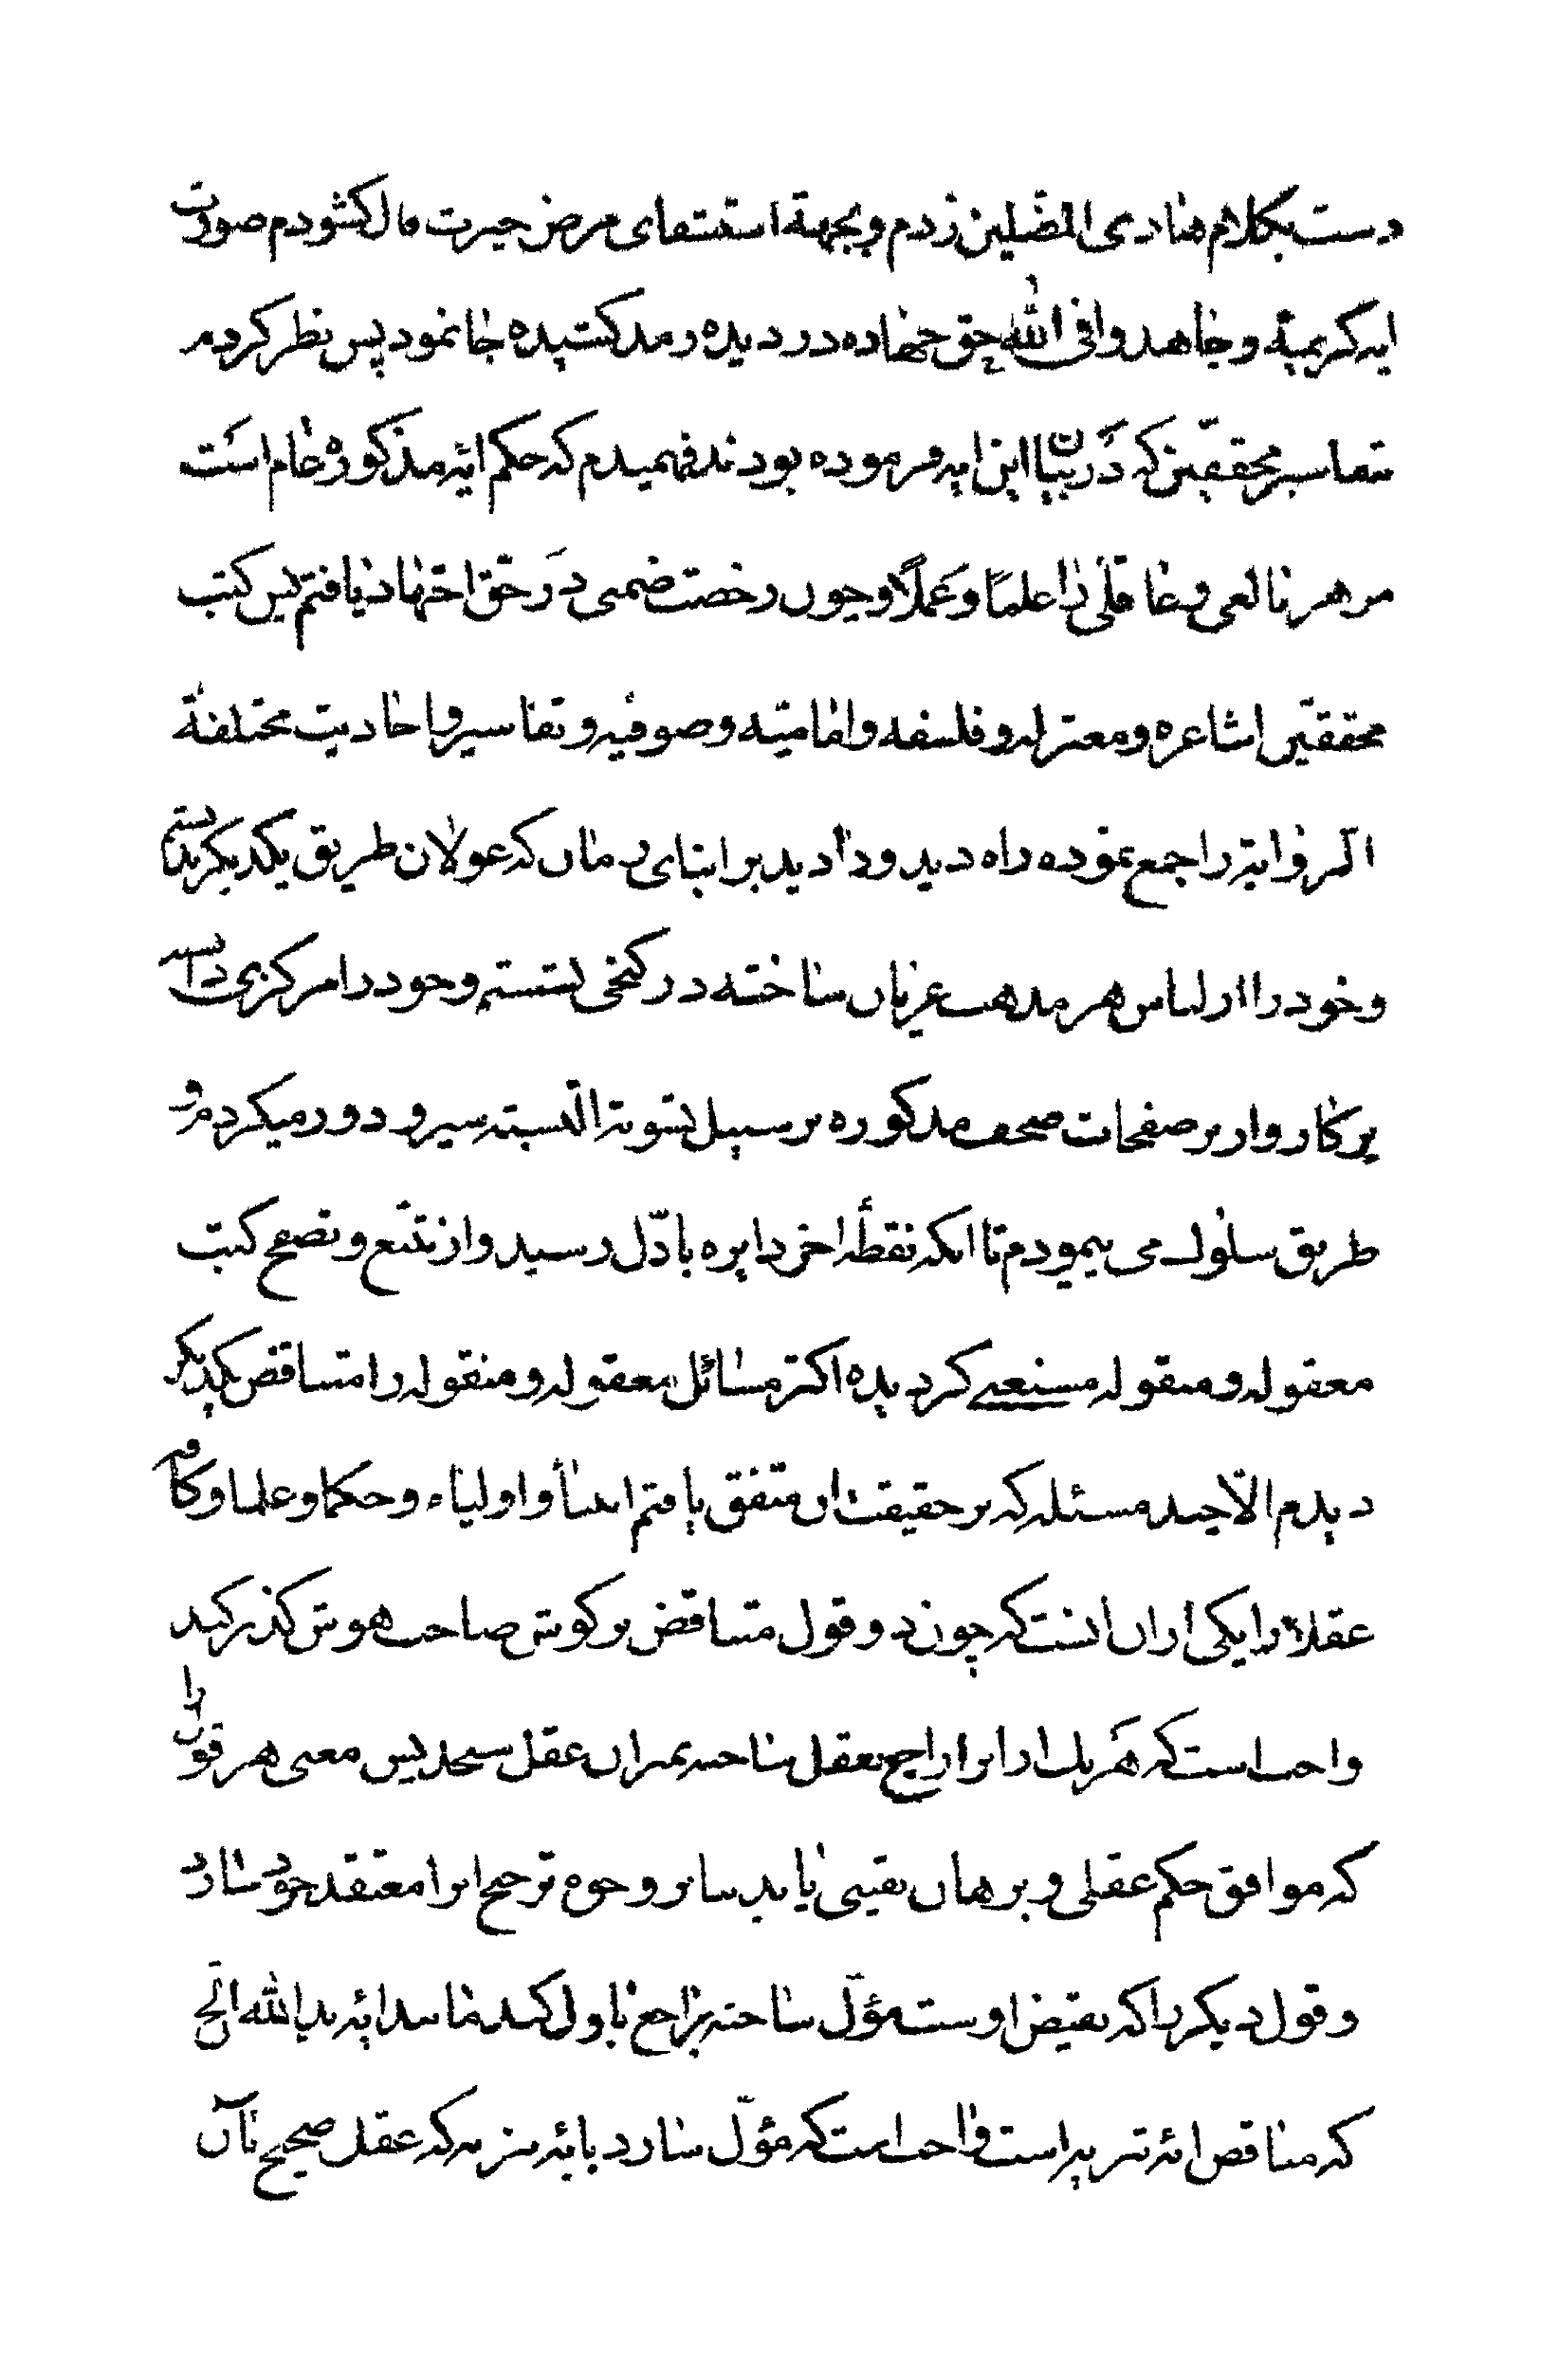 دست بکلام هادی المضلین زدم و بجهة استشفای مرض حیرت فال کشودم صورت
ایه کریمهٔ و جاهدوا فی الله حق جهاده در دیده رمد کشیده جا نمود پس نظر کردم
تفاسیر محققین که در بیان این ایه فرموده بودند فهمیدم که حکم ایه مذکوره عام است
مر هر بالغی و عاقلی را علما و عملا و چون رخصت ضمنی در حق اجتهاد یافتم پس کتب
محققین اشاعره و معتزله و فلسفه و امامیه و صوفیه و تفاسیر و احادیث مختلفة
الروایة را جمع نموده راه دید و دادید بر ابنای زمان که غولان طریق یکدیکرند بستم
و خود را از لباس هر مذهب عریان ساخته در کنجی نشستم و خود را مرکز بحث دانسته
پرکار وار بر صفحات صحف مذکوره بر سبیل تسویة النسبته سیر و دور میکردم و
طریق سلوک می پیمودم تا انکه نقطه اخر دایره باول رسید و از تتبع و تصفح کتب
معقوله و منقوله مستغنی کردیده اکثر مسائل معقوله و منقوله را متناقض یکدیکر
دیدم الا چند مسئله که بر حقیقت ان متفق یافتم انبیا و اولیاء و حکما و علما و کافه
عقلا را یکی از ان انست که چون دو قول متناقض بر کوش صاحب هوش کذر کند
واجب است که هر یک از انرا راجع بعقل ساخته بمیزان عقل سنجد پس معنی هر قول را
که موافق حکم عقلی و برهان یقینی یابد بنابر وجوه ترجیح انرا معتقد خود سازد
و قول دیکر را که نقیض اوست مؤل ساخته راجع باول کند مانند ایه یدالله الخ
که مناقض ایه تنزیه است واجب است که مؤل سازد بایه تنزیه که عقل صحیح بان